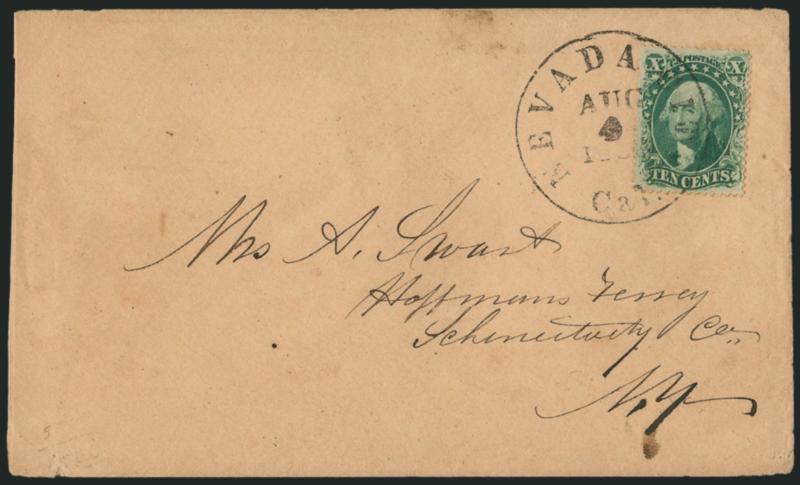 NEVADA
AUG
Cal.
X U.S. POSTAGE X
TEN CENTS
Mrs A. Swart
Hoffmans Ferrey
Schenectady Co,
N.Y